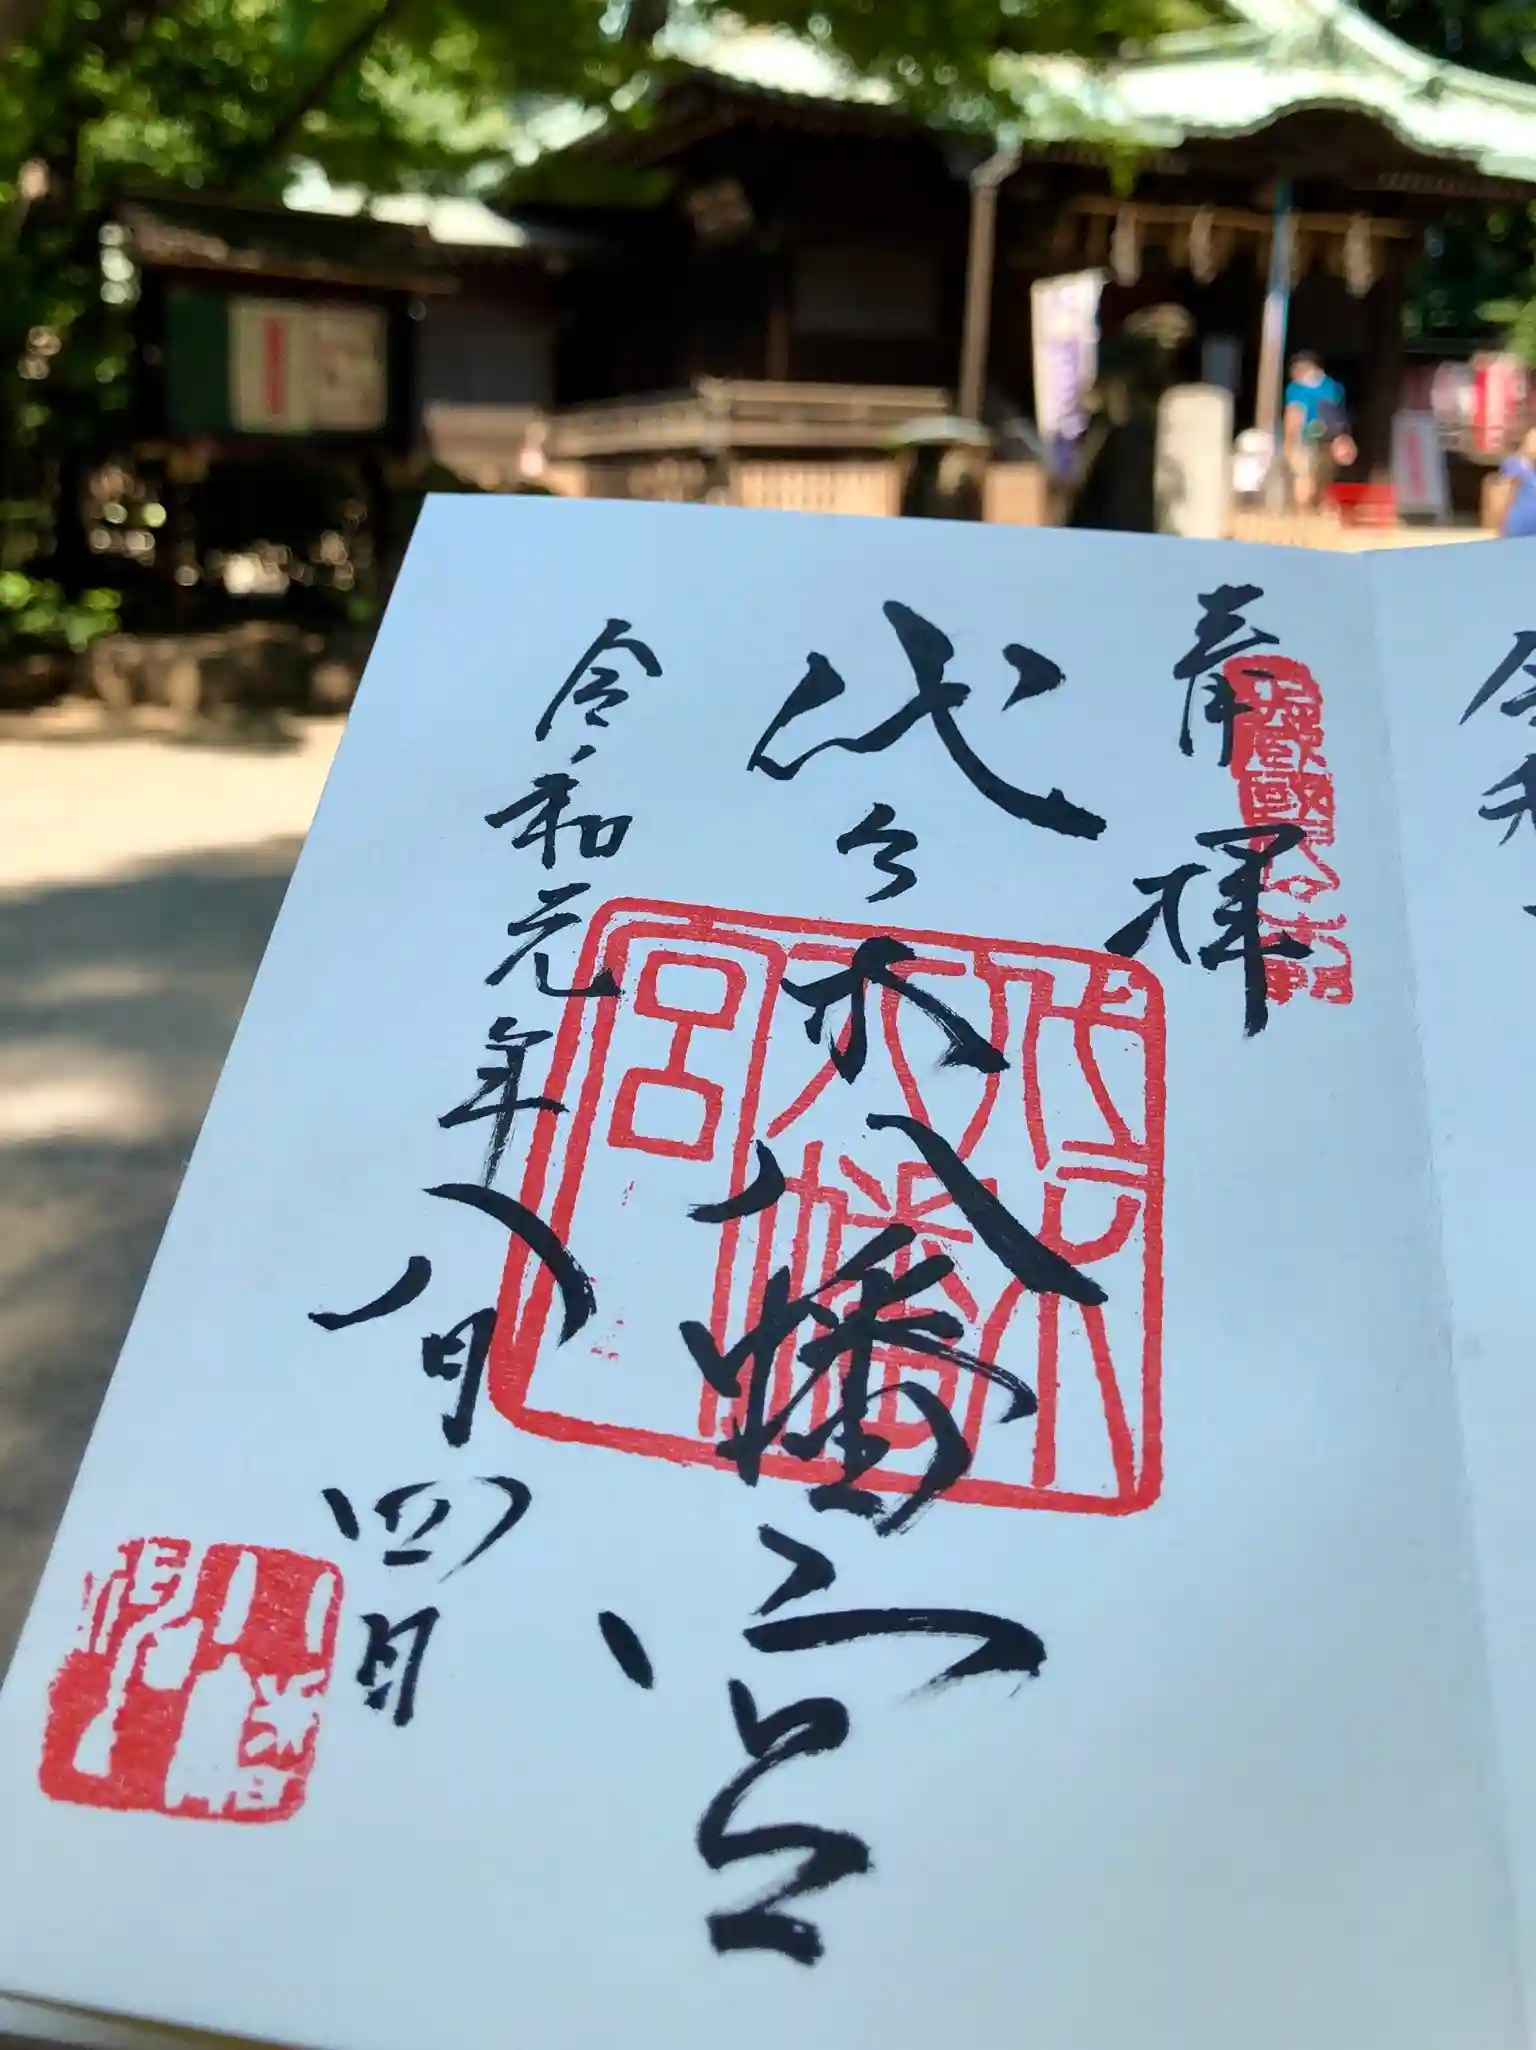 奉拝
代々木八幡宮
令和元年八月四日
代々木
八幡
宮
令和